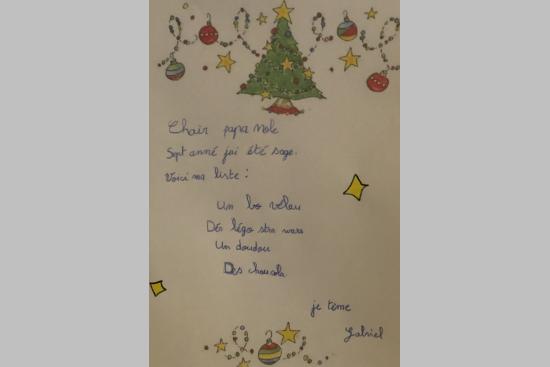 Chair papa Nole
Sept anné j'ai été sage.
Voici ma liste :
Un bo vélau
Dés légo star wars
Un doudou
Des chaucola
je tème
Gabriel